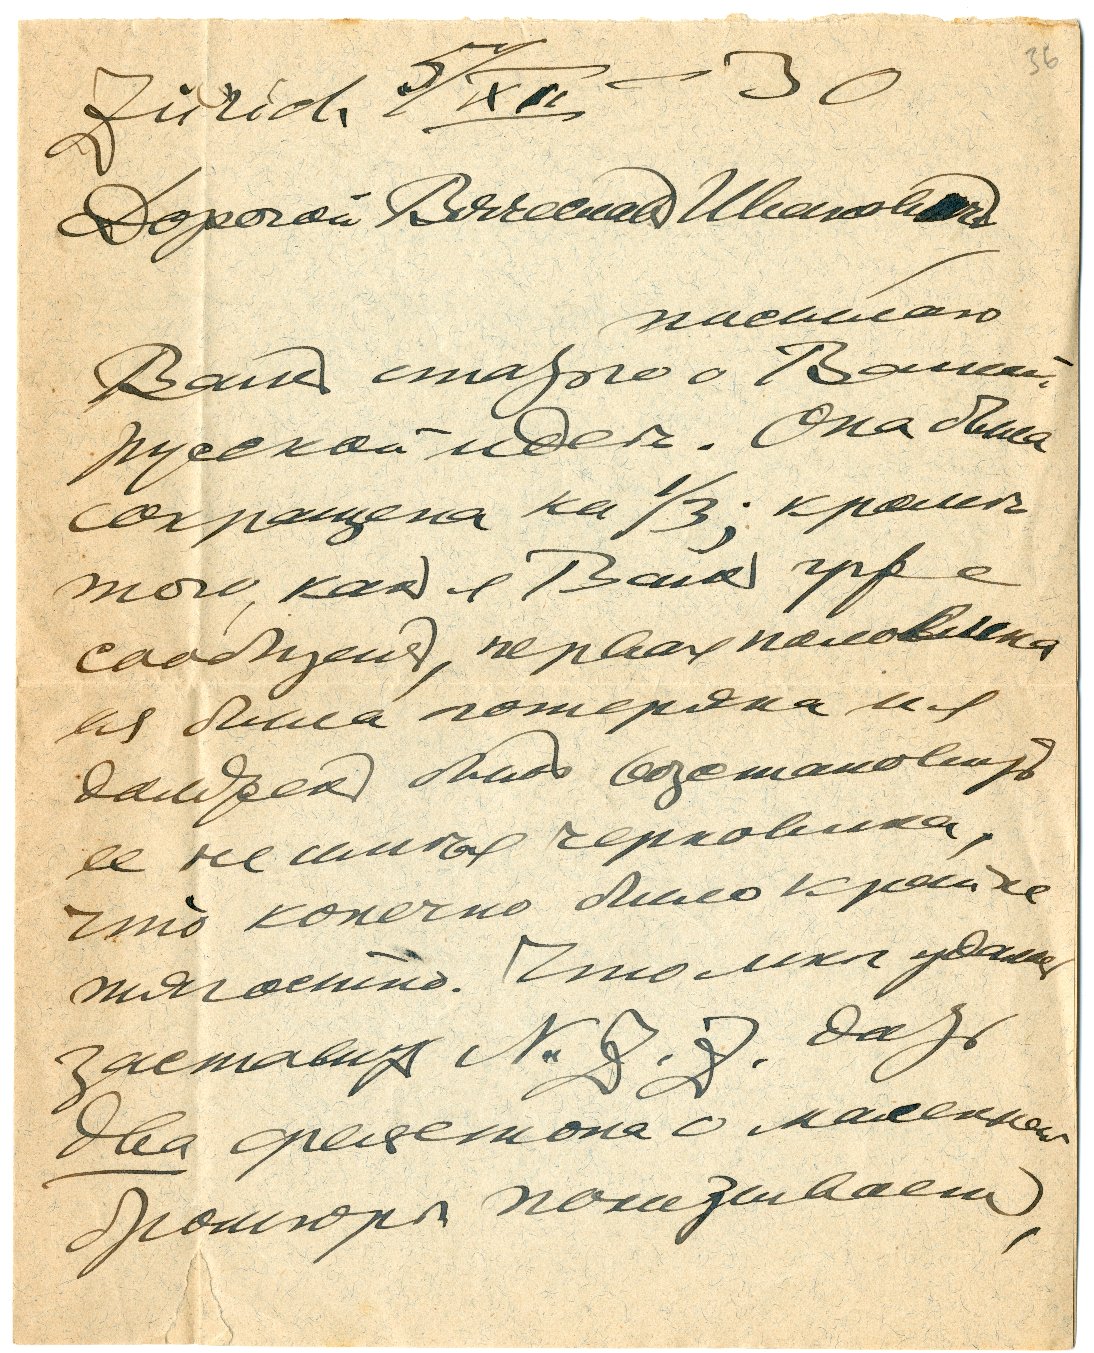 36
Zürich, 5/XII – 30
Дорогой Вячеславъ Ивановичъ
посылаю
Вамъ статью о Вашей
русской идеѣ. Она была
сокращена на 1/3; кромѣ
того, какъ я Вамъ уже
сообщалъ, первая половина
ея была потеряна и я
долженъ былъ возстановить
ее не имѣя черновика,
что конечно было крайне
тягостно. Что мнѣ удалось
заставить N. Z. Z. дать
два фельетона о маленькой
брошюрѣ показываетъ,